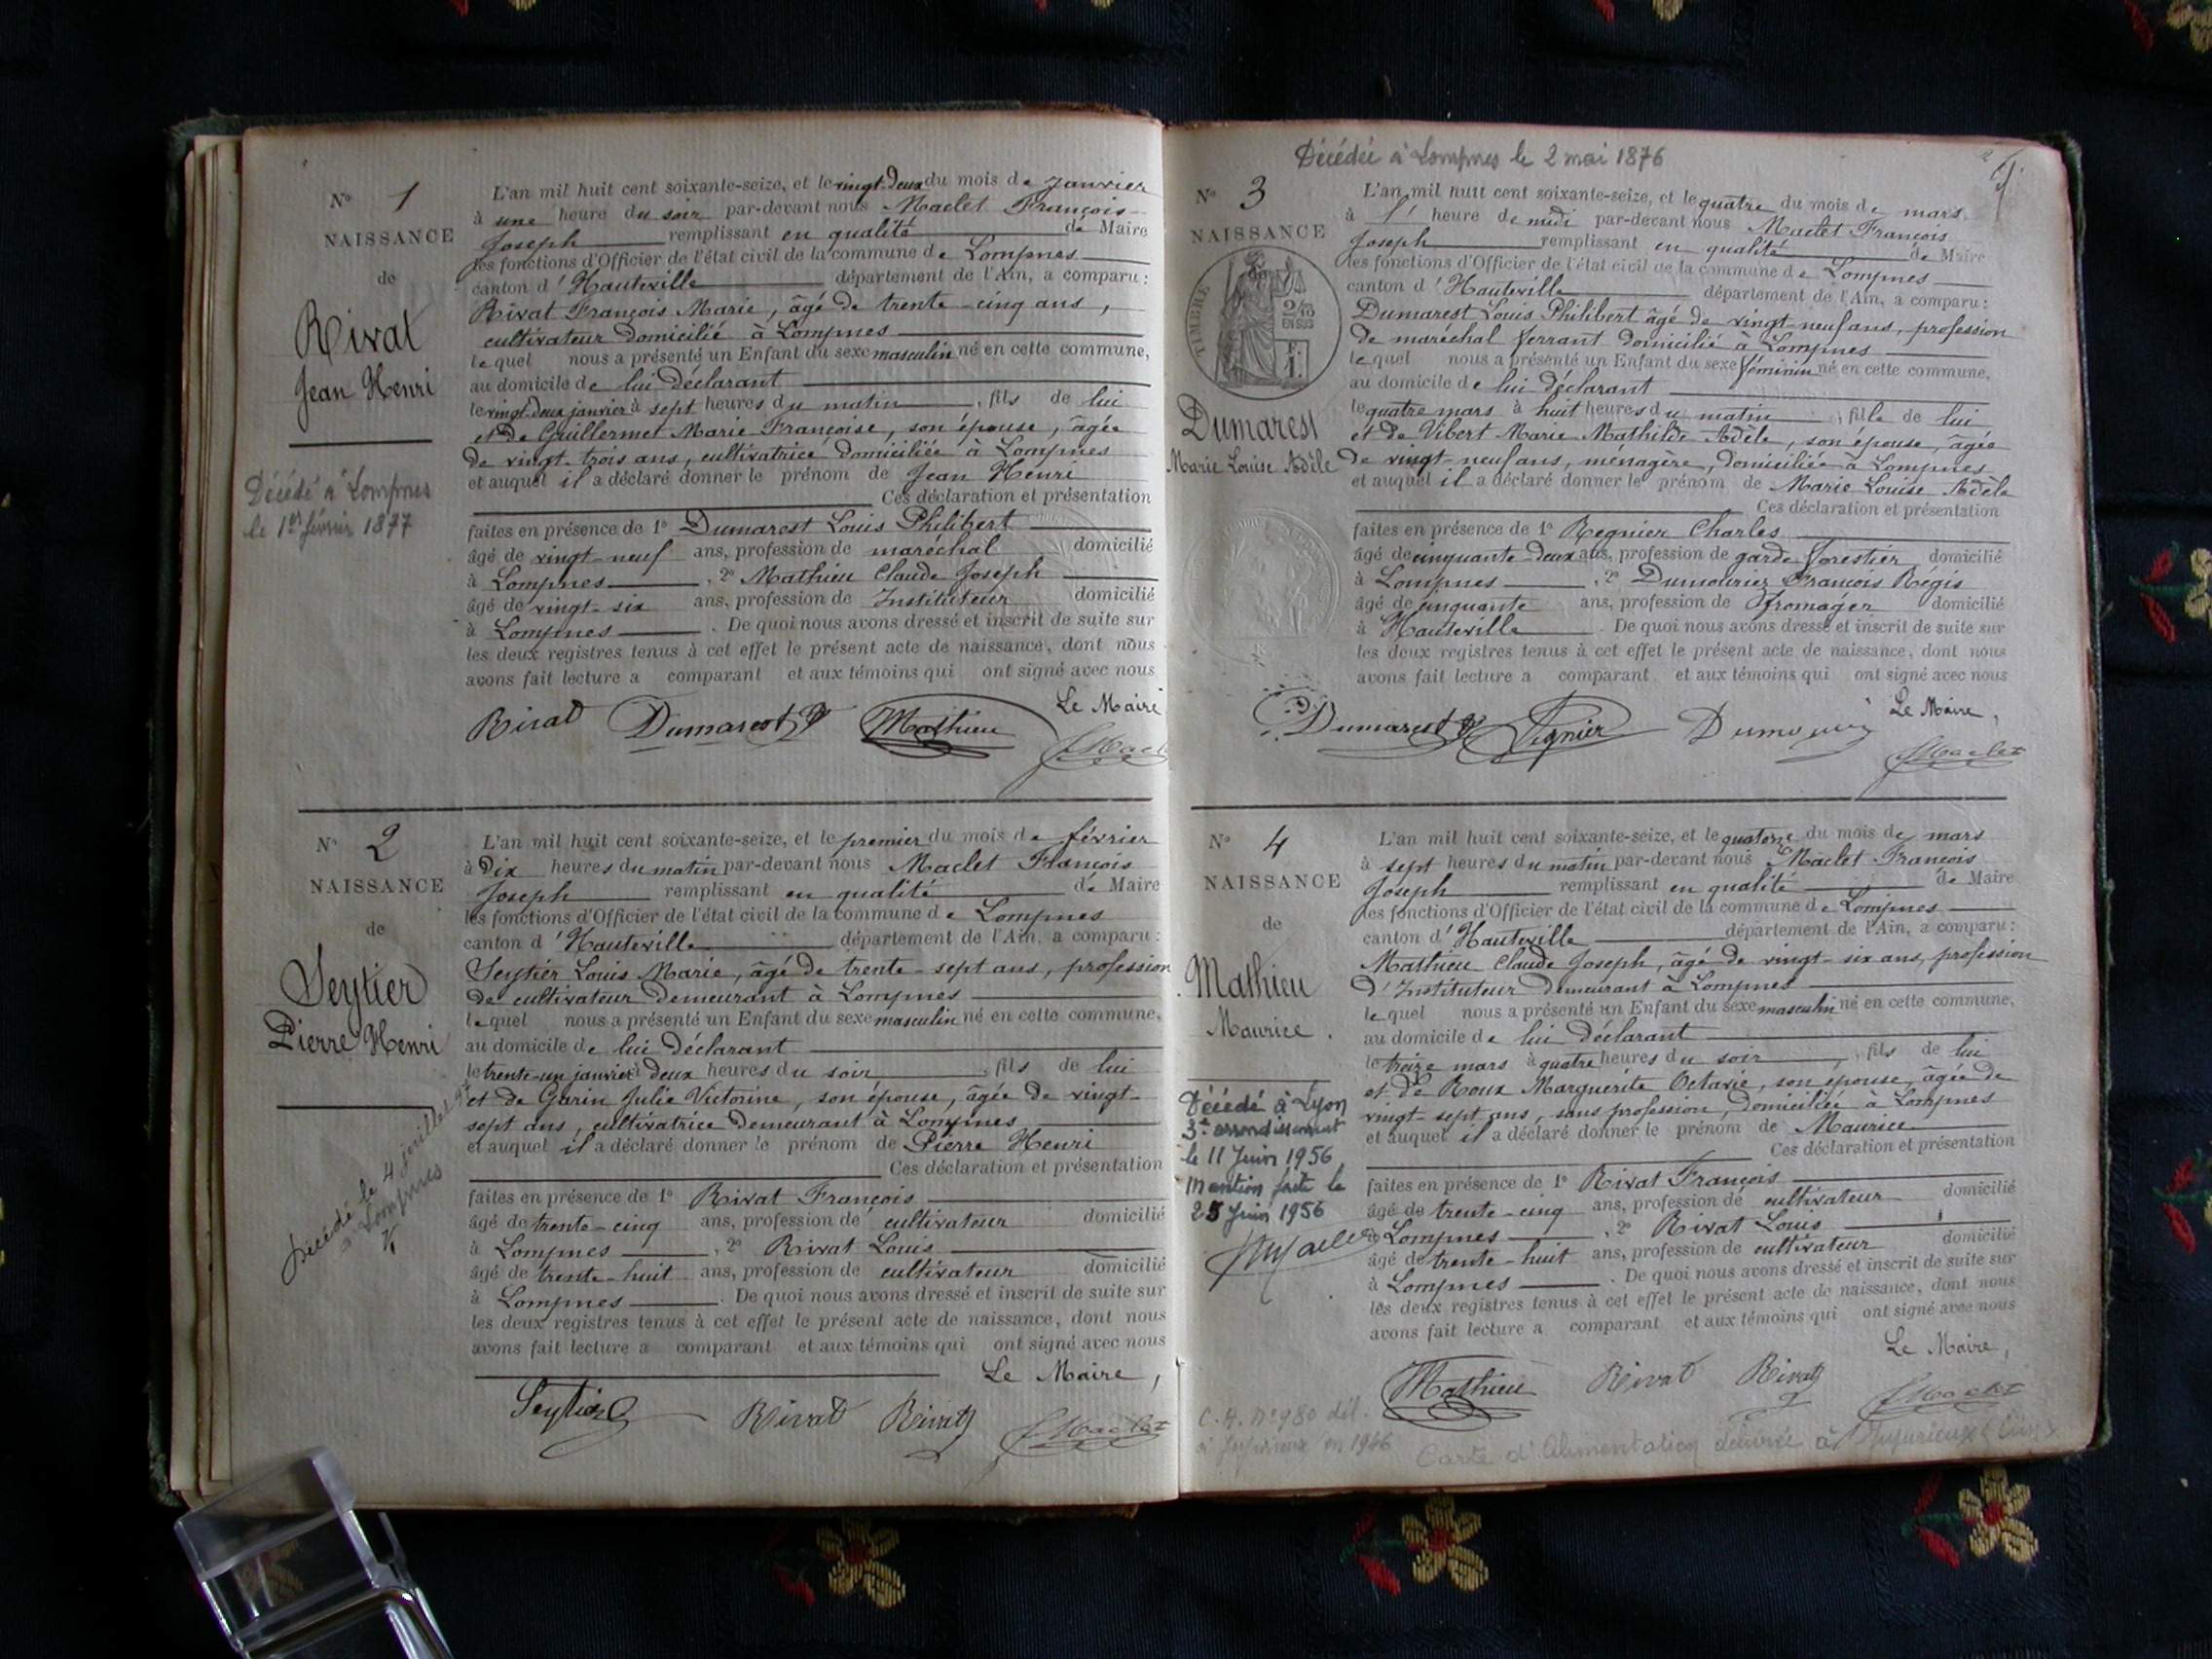 N° 1
NAISSANCE
de
Rivat
Jean Henri
Décédé à Lompnes
le 1er février 1877
L'an mil huit cent soixante-seize, et le vingt-deux du mois de janvier
à une heure du soir par-devant nous Maclet François
Joseph remplissant en qualité de Maire
les fonctions d'Officier de l'état civil de la commune de Lompnes
canton d'Hauteville département de l'Ain, a comparu :
Rivat François Marie, âgé de trente-cinq ans,
cultivateur domicilié à Lompnes
lequel nous a présenté un Enfant du sexe masculin né en cette commune,
au domicile de lui déclarant
le vingt-deux janvier à sept heures du matin, fils de lui
et de Guillermet Marie Françoise, son épouse, âgée
de vingt-trois ans, cultivatrice domiciliée à Lompnes
et auquel il a déclaré donner le prénom de Jean Henri
Ces déclaration et présentation
faites en présence de 1° Dumarest Louis Philibert
âgé de vingt-neuf ans, profession de maréchal domicilié
à Lompnes, 2° Mathieu Claude Joseph
âgé de vingt-six ans, profession de Instituteur domicilié
à Lompnes. De quoi nous avons dressé et inscrit de suite sur
les deux registres tenus à cet effet le présent acte de naissance, dont nous
avons fait lecture a comparant et aux témoins qui ont signé avec nous
Le Maire
Rivat Dumarest Mathieu Maclet
N° 2
NAISSANCE
de
Seytier
Pierre Henri
Décédé le 4 juillet
à Lompnes
L'an mil huit cent soixante-seize, et le premier du mois de février
à Dix heures du matin par-devant nous Maclet François
Joseph remplissant en qualité de Maire
les fonctions d'Officier de l'état civil de la commune de Lompnes
canton d'Hauteville département de l'Ain, a comparu :
Seytier Louis Marie, âgé de trente-sept ans, profession
de cultivateur demeurant à Lompnes
lequel nous a présenté un Enfant du sexe masculin né en cette commune,
au domicile de lui déclarant
le trente-un janvier à deux heures du soir, fils de lui
et de Garin Julie Victorine, son épouse, âgée de vingt-
sept ans, cultivatrice demeurant à Lompnes
et auquel il a déclaré donner le prénom de Pierre Henri
Ces déclaration et présentation
faites en présence de 1° Rivat François
âgé de trente-cinq ans, profession de cultivateur domicilié
à Lompnes, 2° Rivat Louis
âgé de trente-huit ans, profession de cultivateur domicilié
à Lompnes. De quoi nous avons dressé et inscrit de suite sur
les deux registres tenus à cet effet le présent acte de naissance, dont nous
avons fait lecture a comparant et aux témoins qui ont signé avec nous
Le Maire,
Seytier Rivat Rivat Maclet
Décédée à Lompnes le 2 mai 1876
N° 3
NAISSANCE
de
TIMBRE
2/10
EN SUS
Dumarest
Marie Louise Adèle
L'an mil huit cent soixante-seize, et le quatre du mois de mars
à 1' heure de midi par-devant nous Maclet François
Joseph remplissant en qualité de Maire
les fonctions d'Officier de l'état civil de la commune de Lompnes
canton d'Hauteville département de l'Ain, a comparu :
Dumarest Louis Philibert âgé de vingt-neuf ans, profession
de maréchal ferrant domicilié à Lompnes
lequel nous a présenté un Enfant du sexe féminin né en cette commune,
au domicile de lui déclarant
le quatre mars à huit heures du matin, fille de lui
et de Vibert Marie Mathilde Adèle, son épouse, âgée
de vingt-neuf ans, ménagère, domiciliée à Lompnes
et auquel il a déclaré donner le prénom de Marie Louise Adèle
Ces déclaration et présentation
faites en présence de 1° Regnier Charles
âgé de cinquante deux ans, profession de garde forestier domicilié
à Lompnes, 2° Dumourier François Régis
âgé de cinquante ans, profession de fromager domicilié
à Hauteville. De quoi nous avons dressé et inscrit de suite sur
les deux registres tenus à cet effet le présent acte de naissance, dont nous
avons fait lecture a comparant et aux témoins qui ont signé avec nous
Le Maire,
Dumarest Regnier Maclet
N° 4
NAISSANCE
de
Mathieu
Maurice.
Décédé à Lyon
3e arrondissement
le 11 Juin 1956
Mention faite le
25 Juin 1956
L'an mil huit cent soixante-seize, et le quatorze du mois de mars
à sept heures du matin par-devant nous Maclet François
Joseph remplissant en qualité de Maire
les fonctions d'Officier de l'état civil de la commune de Lompnes
canton d'Hauteville département de l'Ain, a comparu :
Mathieu Claude Joseph, âgé de vingt-six ans, profession
d'Instituteur demeurant à Lompnes
lequel nous a présenté un Enfant du sexe masculin né en cette commune,
au domicile de lui déclarant
le treize mars à quatre heures du soir, fils de lui
et de Roux Marguerite Octavie, son épouse, âgée de
vingt-sept ans, sans profession, domiciliée à Lompnes
et auquel il a déclaré donner le prénom de Maurice
Ces déclaration et présentation
faites en présence de 1° Rivat François
âgé de trente-cinq ans, profession de cultivateur domicilié
à Lompnes, 2° Rivat Louis
âgé de trente-huit ans, profession de cultivateur domicilié
à Lompnes. De quoi nous avons dressé et inscrit de suite sur
les deux registres tenus à cet effet le présent acte de naissance, dont nous
avons fait lecture a comparant et aux témoins qui ont signé avec nous
Le Maire,
Mathieu Rivat Rivat Maclet
C.A. N° 980 dél.
à Jujurieux en 1946
Carte d'Alimentation délivrée à Jujurieux (Ain)